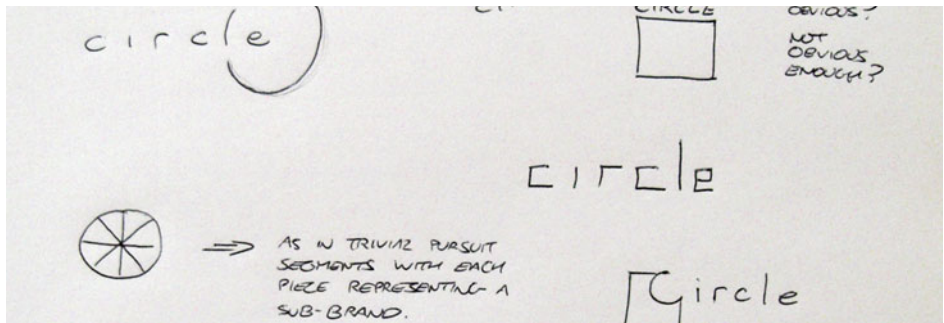 circle
CIRCLE
OBVIOUS?
NOT
OBVIOUS
ENOUGH?
circle
AS IN TRIVIAL PURSUIT
SEGMENTS WITH EACH
PIECE REPRESENTING A
SUB-BRAND.
Circle